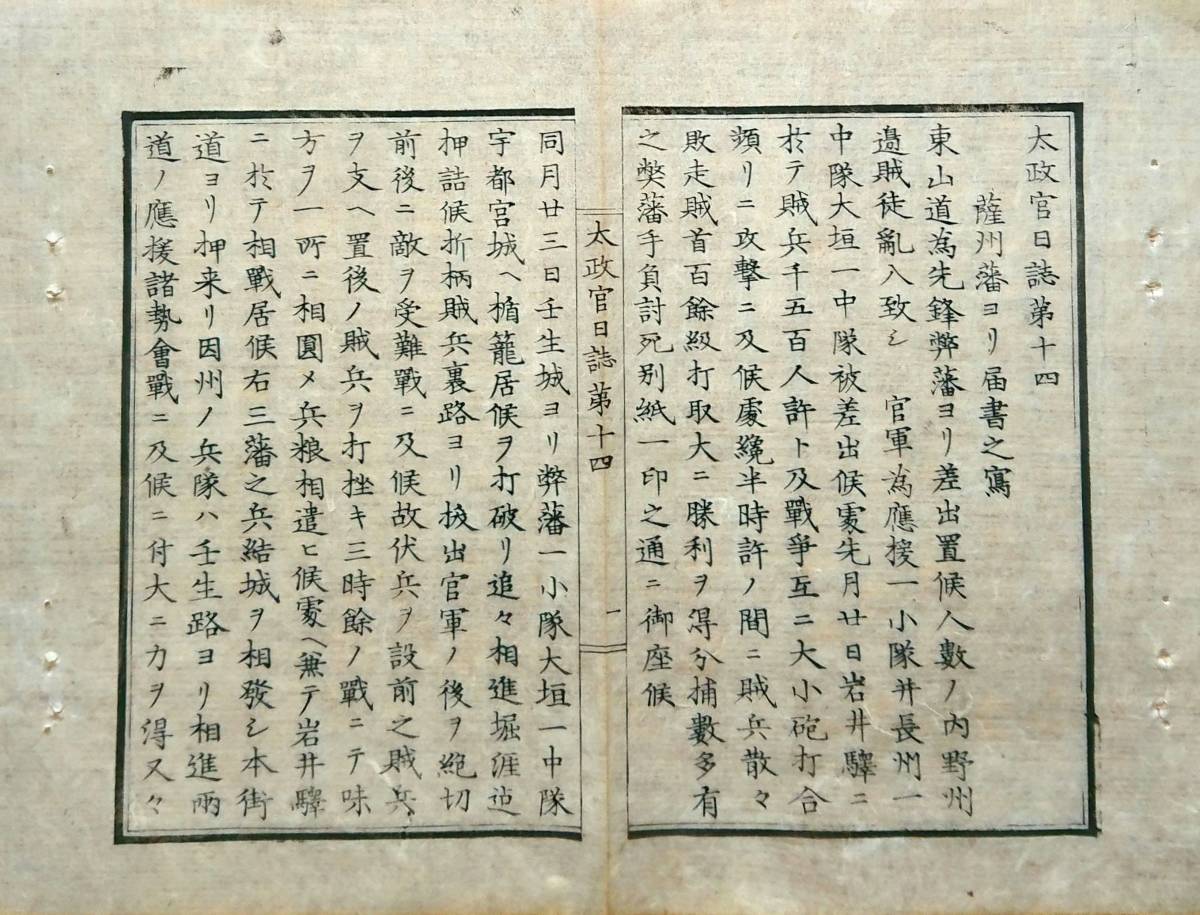 太政官日誌第十四
薩州藩ヨリ届書之寫
東山道為先鋒弊藩ヨリ差出置候人數ノ内野州
邉賊徒亂入致シ　官軍為應援一小隊并長州一
中隊大垣一中隊被差出候處先月廿日岩井驛ニ
於テ賊兵千五百人許ト及戰爭互ニ大小砲打合
頻リニ攻擊ニ及候處纔半時許ノ間ニ賊兵散々
敗走賊首百餘級打取大ニ勝利ヲ得分捕數多有
之弊藩手負討死別紙一印之通ニ御座候
太政官日誌第十四
一
同月廿三日壬生城ヨリ弊藩一小隊大垣一中隊
宇都宮城ヘ楯籠居候ヲ打破リ追々相進堀涯迠
押詰候折柄賊兵裏路ヨリ拔出官軍ノ後ヲ絶切
前後ニ敵ヲ受難戰ニ及候故伏兵ヲ設前之賊兵
ヲ支ヘ置後ノ賊兵ヲ打挫キ三時餘ノ戰ニテ味
方ヲ一所ニ相圓メ兵粮相遣ヒ候處ヘ兼テ岩井驛
ニ於テ相戰居候右三藩之兵結城ヲ相發シ本街
道ヨリ押来リ因州ノ兵隊ハ壬生路ヨリ相進兩
道ノ應援諸勢會戰ニ及候ニ付大ニ力ヲ得又々